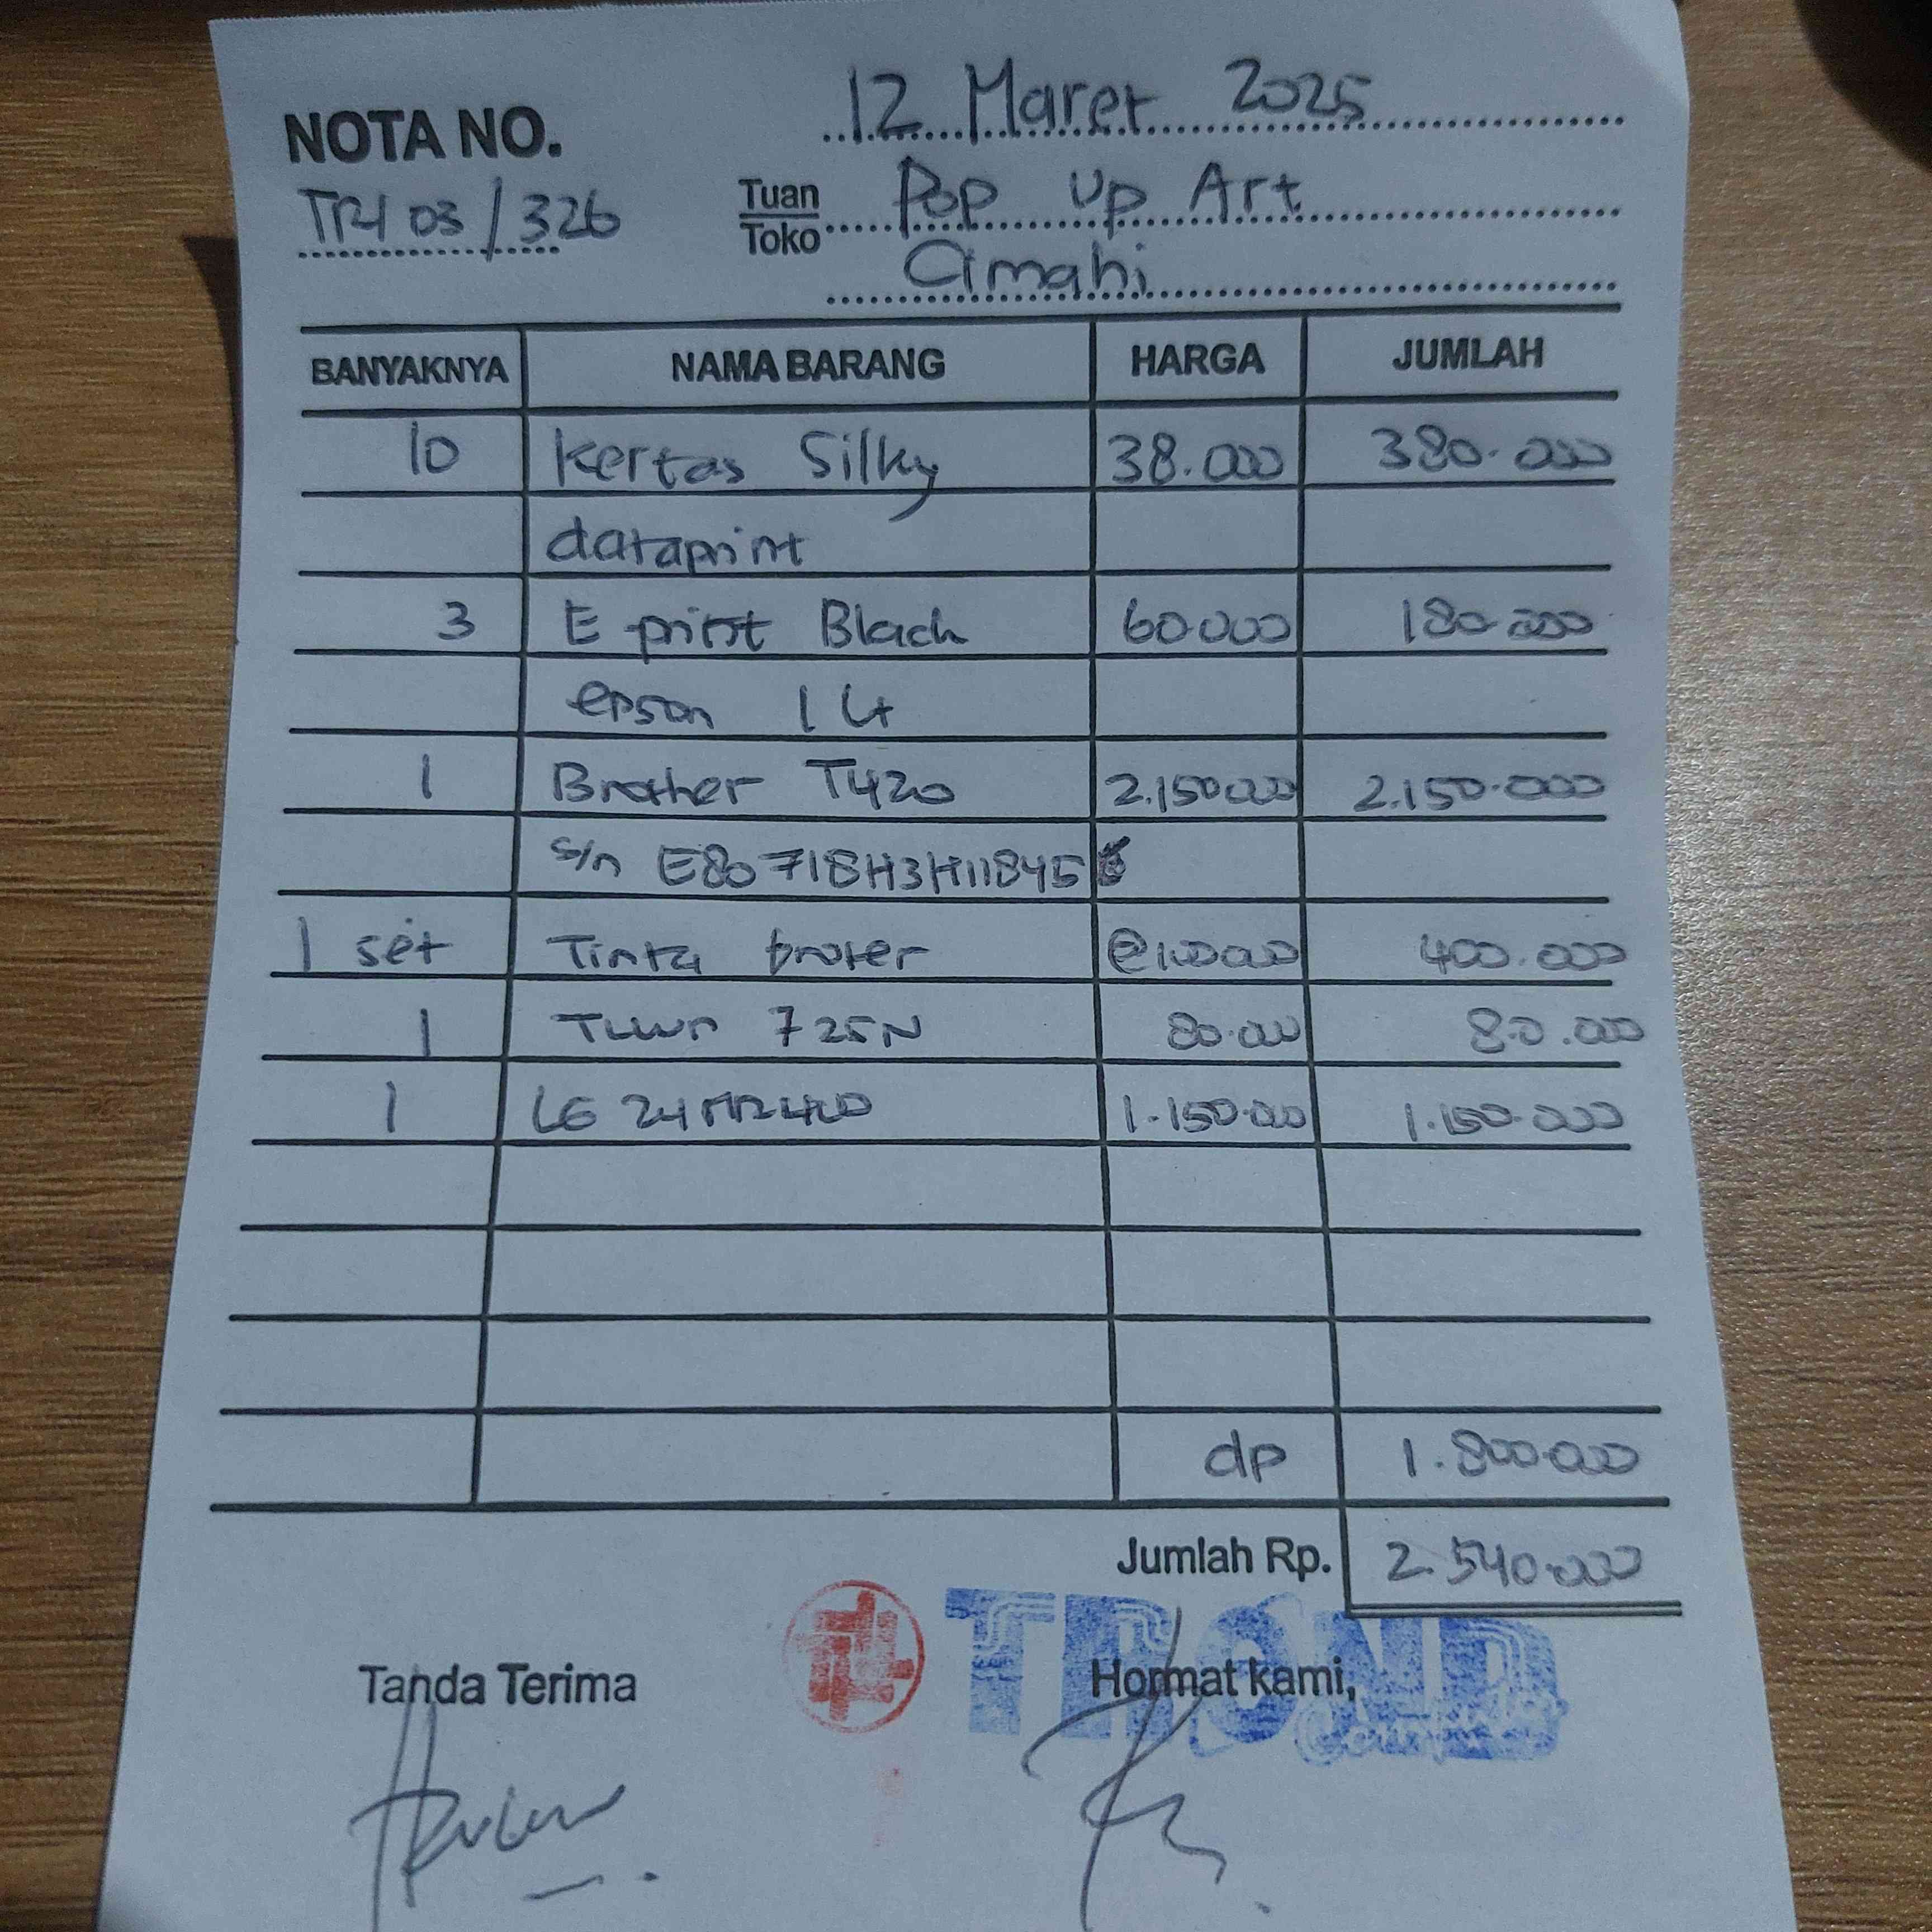 12 Maret 2025
NOTA NO.
TR4 03/326
Tuan
Toko
Pop Up Art
Cimahi
BANYAKNYA NAMA BARANG HARGA JUMLAH
10 Kertas Silky 38.000 380.000
dataprint
3 E print Black 60.000 180.000
epson 1 Lt
1 Brother T420 2.150.000 2.150.000
s/n E80718H3H11845
1 set Tinta broter @100.000 400.000
1 725N 80.000 80.000
1 LG 1.150.000 1.150.000
dp 1.800.000
Jumlah Rp. 2.540.000
TROND
Computer
Tanda Terima Hormat kami,